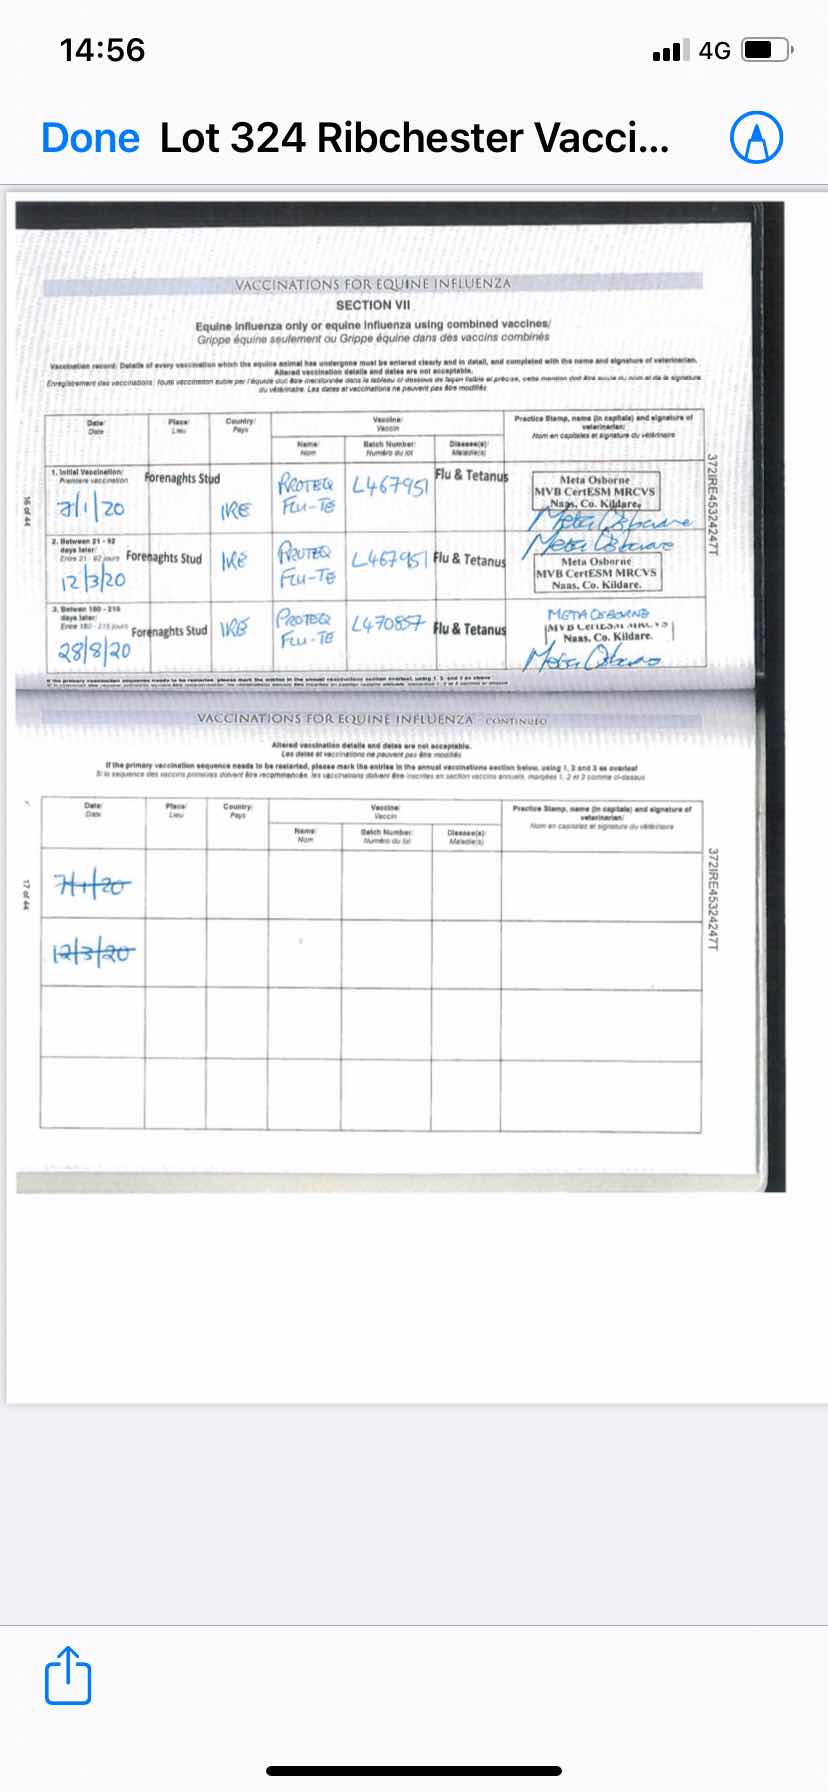 14:56
4G
Done Lot 324 Ribchester Vacci...
VACCINATIONS FOR EQUINE INFLUENZA
SECTION VII
Equine influenza only or equine influenza using combined vaccines/
Grippe équine seulement ou Grippe équine dans des vaccins combinés
Vaccination record: Details of every vaccination which the equine animal has undergone must be entered clearly and in detail, and completed with the name and signature of veterinarian.
Altered vaccination details and dates are not acceptable.
Enregistrement des vaccinations: toute vaccination subie par l'équidé doit être mentionnée dans le tableau ci-dessous de façon lisible et précise, cette mention doit être suivie du nom et de la signature
du vétérinaire. Les dates et vaccinations ne peuvent pas être modifiés
Date/ Place/ Country/ Vaccine/ Practice Stamp, name (in capitals) and signature of
Date Lieu Pays Vaccin veterinarian/
Nom en capitales et signature du vétérinaire
Name/ Batch Number/ Disease(s)/
Nom Numéro du lot Maladie(s)
1. Initial Vaccination/
Première vaccination
7/1/20 Forenaghts Stud IRE PROTEQ FLU-TE L467951 Flu & Tetanus
Meta Osborne
MVB CertESM MRCVS
Naas, Co. Kildare.
Meta Osborne
2. Between 21 - 92
days later/
Entre 21 - 92 jours
12/3/20 Forenaghts Stud IRE PROTEQ FLU-TE L467951 Flu & Tetanus
Meta Osborne
Meta Osborne
MVB CertESM MRCVS
Naas, Co. Kildare.
3. Betwen 150 - 215
days later/
Entre 150 - 215 jours
28/8/20 Forenaghts Stud IRE PROTEQ FLU-TE L470857 Flu & Tetanus
META OSBORNE
MVB CertESM MRCVS
Naas, Co. Kildare.
Meta Osborne
16 of 44
372IRE45324247T
If the primary vaccination sequence needs to be restarted, please mark the entries in the annual vaccinations section overleaf, using 1, 2 and 3 as above
VACCINATIONS FOR EQUINE INFLUENZA - CONTINUED
Altered vaccination details and dates are not acceptable.
Les dates et vaccinations ne peuvent pas être modifiés
If the primary vaccination sequence needs to be restarted, please mark the entries in the annual vaccinations section below, using 1, 2 and 3 as overleaf
Si la séquence des vaccins primaires doivent être recommencée, les vaccinations doivent être inscrites en section vaccins annuels, marqués 1, 2 et 3 comme ci-dessus
Date/ Place/ Country/ Vaccine/ Practice Stamp, name (in capitals) and signature of
Date Lieu Pays Vaccin veterinarian/
Nom en capitales et signature du vétérinaire
Name/ Batch Number/ Disease(s)/
Nom Numéro du lot Maladie(s)
7/1/20
12/3/20
17 of 44
372IRE45324247T